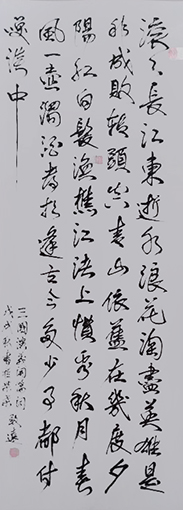 滾滾長江東逝水浪花淘盡英雄是
非成敗轉頭空青山依舊在幾度夕
陽紅白髮漁樵江渚上慣看秋月春
風一壺濁酒喜相逢古今多少事都付
笑談中
三國演義開篇詞
戊戌秋書於